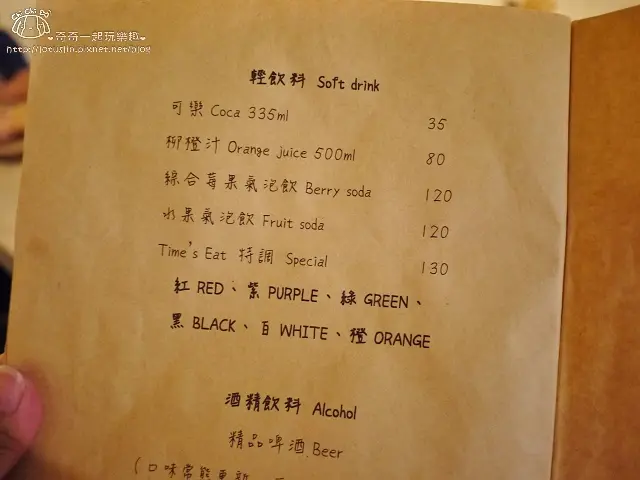 Chi Chi BB
♥奇奇一起玩樂趣♥
http://lotuslin.pixnet.net/blog
輕飲料 Soft drink
可樂 Coca 335ml 35
柳橙汁 Orange juice 500ml 80
綜合莓果氣泡飲 Berry soda 120
水果氣泡飲 Fruit soda 120
Time's Eat 特調 Special 130
紅 RED、紫 PURPLE、綠 GREEN、
黑 BLACK、白 WHITE、橙 ORANGE
酒精飲料 Alcohol
精品啤酒 Beer
(口味常態更新